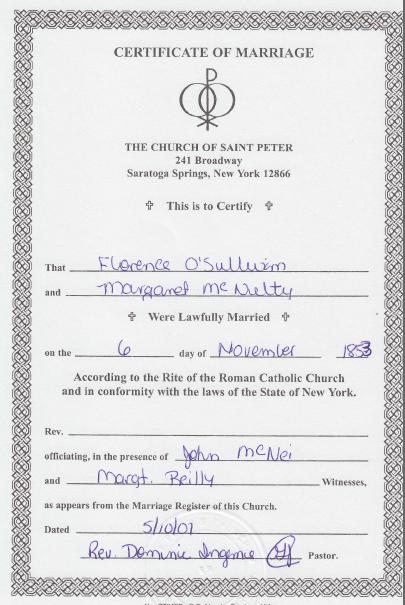 CERTIFICATE OF MARRIAGE
THE CHURCH OF SAINT PETER
241 Broadway
Saratoga Springs, New York 12866
This is to Certify
That Florence O'Sullivan
and Margaret McNulty
Were Lawfully Married
on the 6 day of November 1853
According to the Rite of the Roman Catholic Church
and in conformity with the laws of the State of New York.
Rev.
officiating, in the presence of John McNei
and Margt. Reilly Witnesses,
as appears from the Marriage Register of this Church.
Dated 5/10/07
Rev. Dominic Ingemie Pastor.